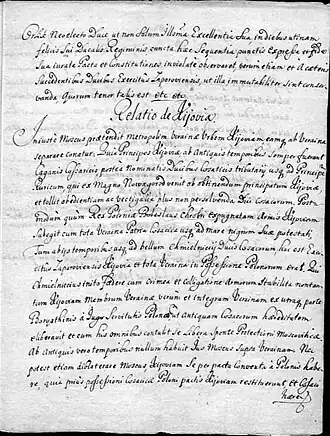 Ordik Neoelecto Duce ut non solum Illsma Excellentia Sua indicibus utinam
felicis sui Ducalis Regiminis cuncta hæc sequentia punctis Expressa et
Sua curate Pacta et Constitutiones inviolate observaret, verum etiam et a cæteris
Succedentibus Ducibus Exercitus Zaporoviensis, ut illa immutabiliter sint conser-
vanda quorum tenor talis est etc etc
Relatio de Kijovia
Iniuste Moscus prætendit Metropolim Ucrainæ Urbem Kijoviam eamq ab Ucraina
separare conatur. Principes Kijoviæ ab Antiquis temporibus Semper fuerunt
Paganis Cosaricis postea nominatis Ducibus Cosaticis tributarij usq ad Principem
Ruricum qui ex Magno Novogrod venit ob obtinendum principatum Kijoviæ
et tollit obedientiam ac vectigalia plus non persolvenda Duci Cosacorum. Post-
modum quum Rex Poloniæ Boleslaus Chrobri expugnatam Armis Kijoviam
subegit cum tota Ucraina Patria Cosacica usq ad mare nigrum suæ potestati.
Tum ab ijs temporibus usq ad bellum Chmielniccij Ducis Cosacorum hac est Exer-
citus Zaporoviensis Kijovia et tota Ucraina in Possessione Polonorum erat.
Chmielniccius inito fædere cum Crimea et coligatione Armorum stabilita non tan-
tum Kijoviam Membrum Ucrainæ verum et integram Ucrainam ex utraq parte
Borysthinis à Jugo servitutis Polonæ ut Antiquam Cosacorum hæreditatem
eliberavit et cum his omnibus contulit se libera sponte Protectioni Moscoviticæ.
Ab Antiquis vero temporibus nullum habuit Jus Moscus supra Ucrainam. Ne-
potest etiam diblaterare Moscus Kijoviam se per pacta Conventa à Polonis habe-
re, quia prius possessioni Cosacicæ Poloni pactis Kijoviam restituerunt, et